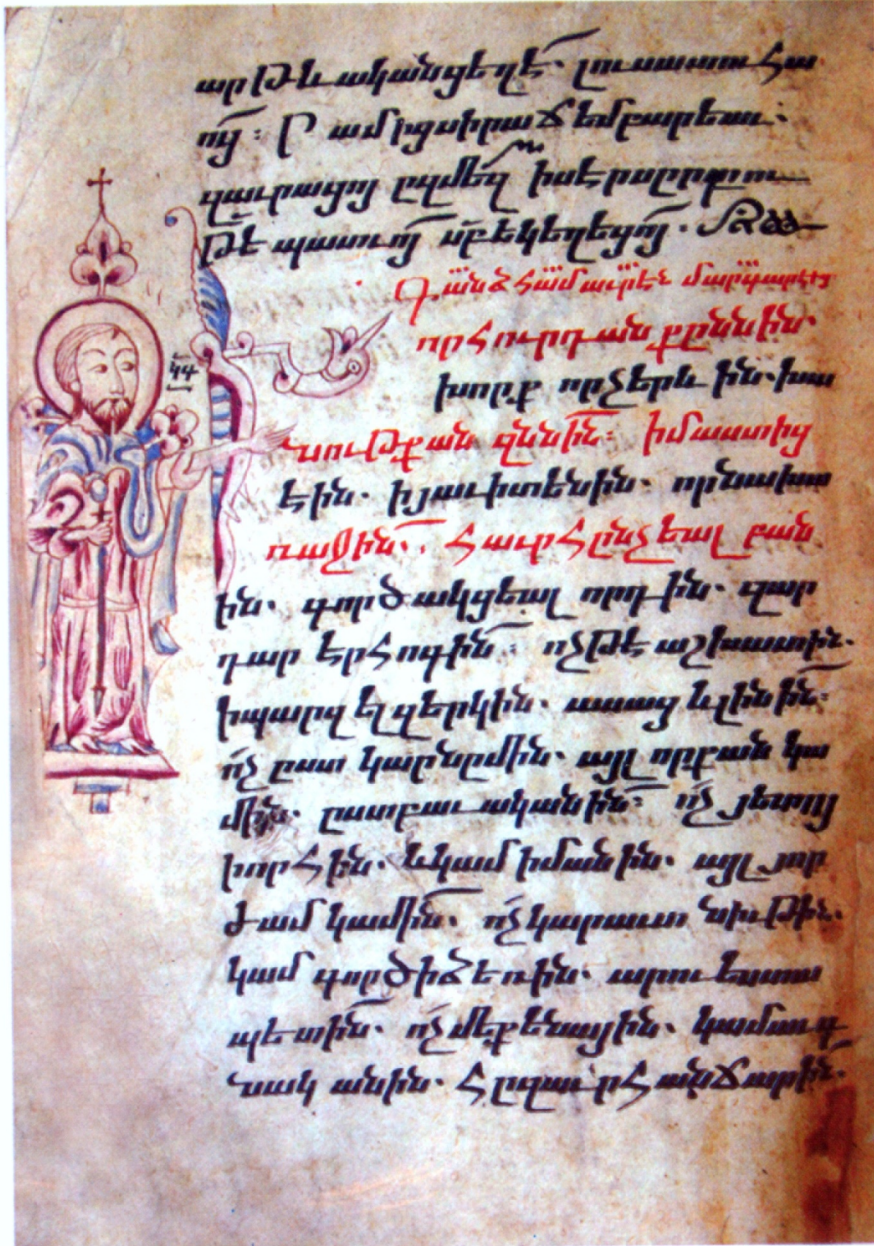 արթնականցեղէ. լուսատուհա
ոյ: Ր ամիցսիրաճեմբարեաւ.
զաւրացոյ ըզմեզ խսէրսըրբու
թէ պատուոյ սբեկեղեցոյ.
Գանձհամաւրէն մարգարէից
որհուրդանքըննին.
խորք որչերև ին. խա
նութքան զննին: իմաստից
էին. իյաւիտենին. որնախա
ռաջին. հաւրհընչեալ բան
ին. գործակցեալ որդին. զար
դար երհոգին: ոչթէ աշխատին.
իպարզ ելզերկին. ասաց ևլինին:
ոչ ըստ կարնըմին. այլ որքան կա
մին. ըստբաւականին: ոչ յետոյ
խորհին. ևկամ իմանին. այլ յոր
ժամ կամին. ոչկարաւտ նիւթին.
կամ գործիճեռին. արուեստա
պետին. ոչմեքենային. կամաւգ
նականին. հըզաւրհանճարին.
կգ